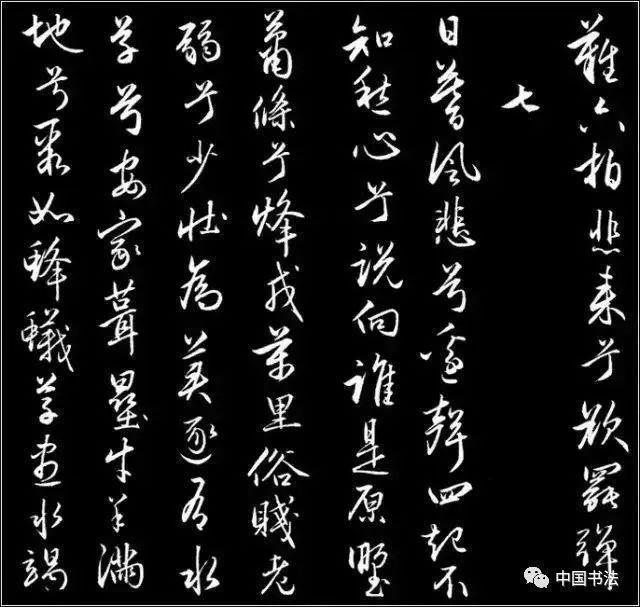 難六拍悲来兮欲罷弹
七
日暮風悲兮邊聲四起不
知愁心兮說向誰是原野
蕭條兮烽戍萬里俗賤老
弱兮少壯為美逐有水
草兮安家葺壘牛羊滿
地兮聚如蜂蟻草盡水竭
中国书法